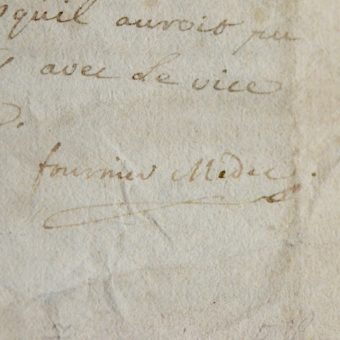 quil auroit pu
avec le vice
fournier Medec.